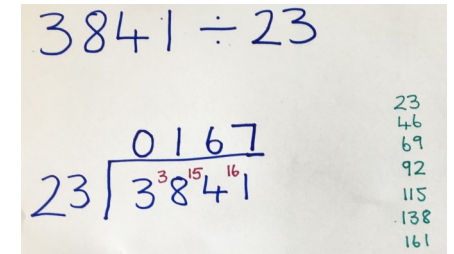 3841 ÷ 23
0167
23 3 3 8 15 4 16 1
23
46
69
92
115
138
161